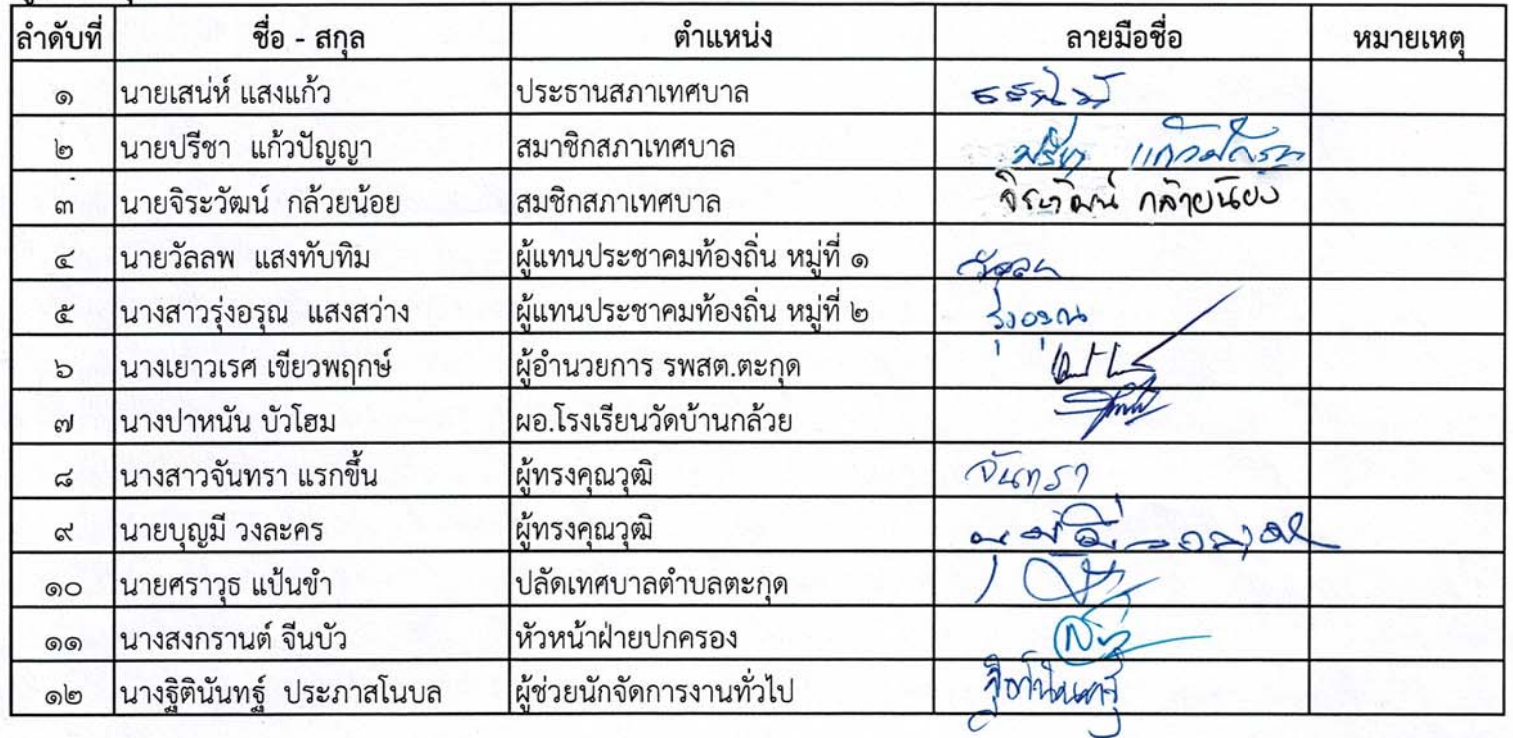 ลำดับที่ ชื่อ - สกุล ตำแหน่ง ลายมือชื่อ หมายเหตุ
๑ นายเสน่ห์ แสงแก้ว ประธานสภาเทศบาล
๒ นายปรีชา แก้วปัญญา สมาชิกสภาเทศบาล ปรีชา แก้วปัญญา
๓ นายจิระวัฒน์ กล้วยน้อย สมชิกสภาเทศบาล จิระวัฒน์ กล้วยน้อย
๔ นายวัลลพ แสงทับทิม ผู้แทนประชาคมท้องถิ่น หมู่ที่ ๑ วัลลพ
๕ นางสาวรุ่งอรุณ แสงสว่าง ผู้แทนประชาคมท้องถิ่น หมู่ที่ ๒ รุ่งอรุณ
๖ นางเยาวเรศ เขียวพฤกษ์ ผู้อำนวยการ รพสต.ตะกุด
๗ นางปาหนัน บัวโฮม ผอ.โรงเรียนวัดบ้านกล้วย
๘ นางสาวจันทรา แรกขึ้น ผู้ทรงคุณวุฒิ จันทรา
๙ นายบุญมี วงละคร ผู้ทรงคุณวุฒิ
๑๐ นายศราวุธ แป้นขำ ปลัดเทศบาลตำบลตะกุด
๑๑ นางสงกรานต์ จีนบัว หัวหน้าฝ่ายปกครอง
๑๒ นางฐิตินันทฐ์ ประภาสโนบล ผู้ช่วยนักจัดการงานทั่วไป